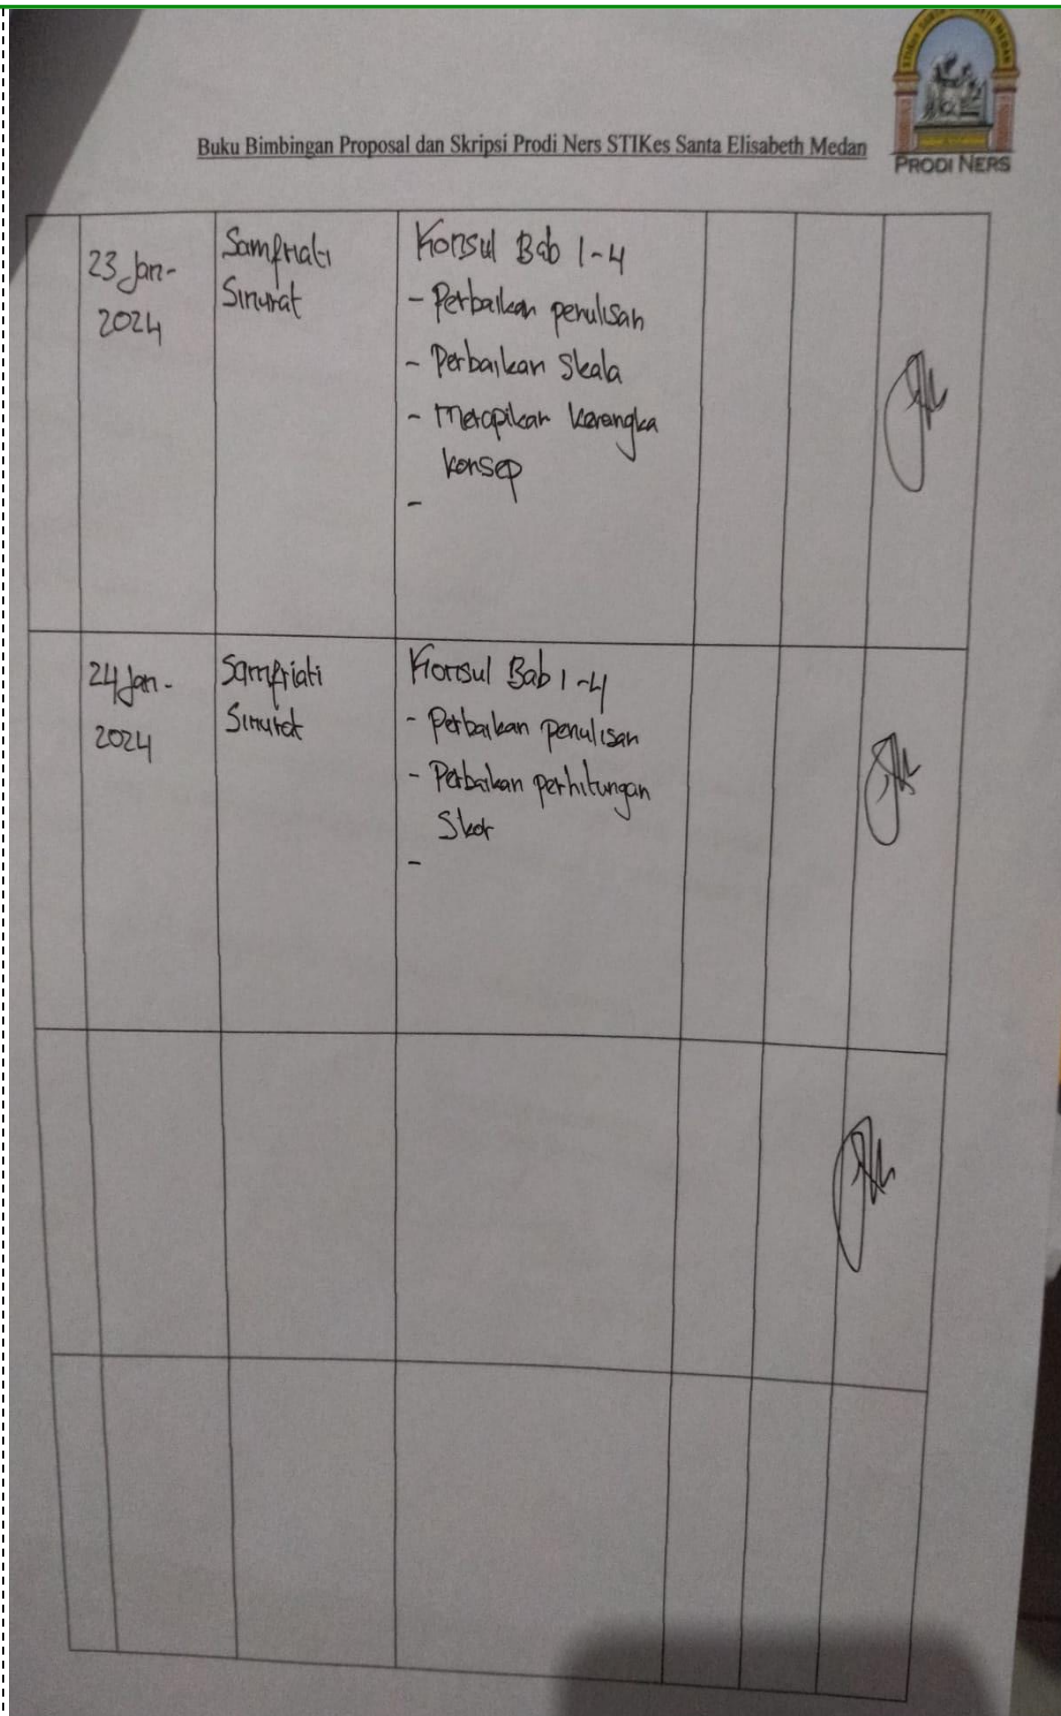 Buku Bimbingan Proposal dan Skripsi Prodi Ners STIKes Santa Elisabeth Medan
PRODI NERS
23 Jan-
2024
Samfriati
Sinurat
Konsul Bab 1-4
- Perbaikan penulisan
- Perbaikan Skala
- Merapikan kerangka
konsep
-
24 Jan-
2024
Samfriati
Sinurat
Konsul Bab 1-4
- Perbaikan penulisan
- Perbaikan perhitungan
Skor
-